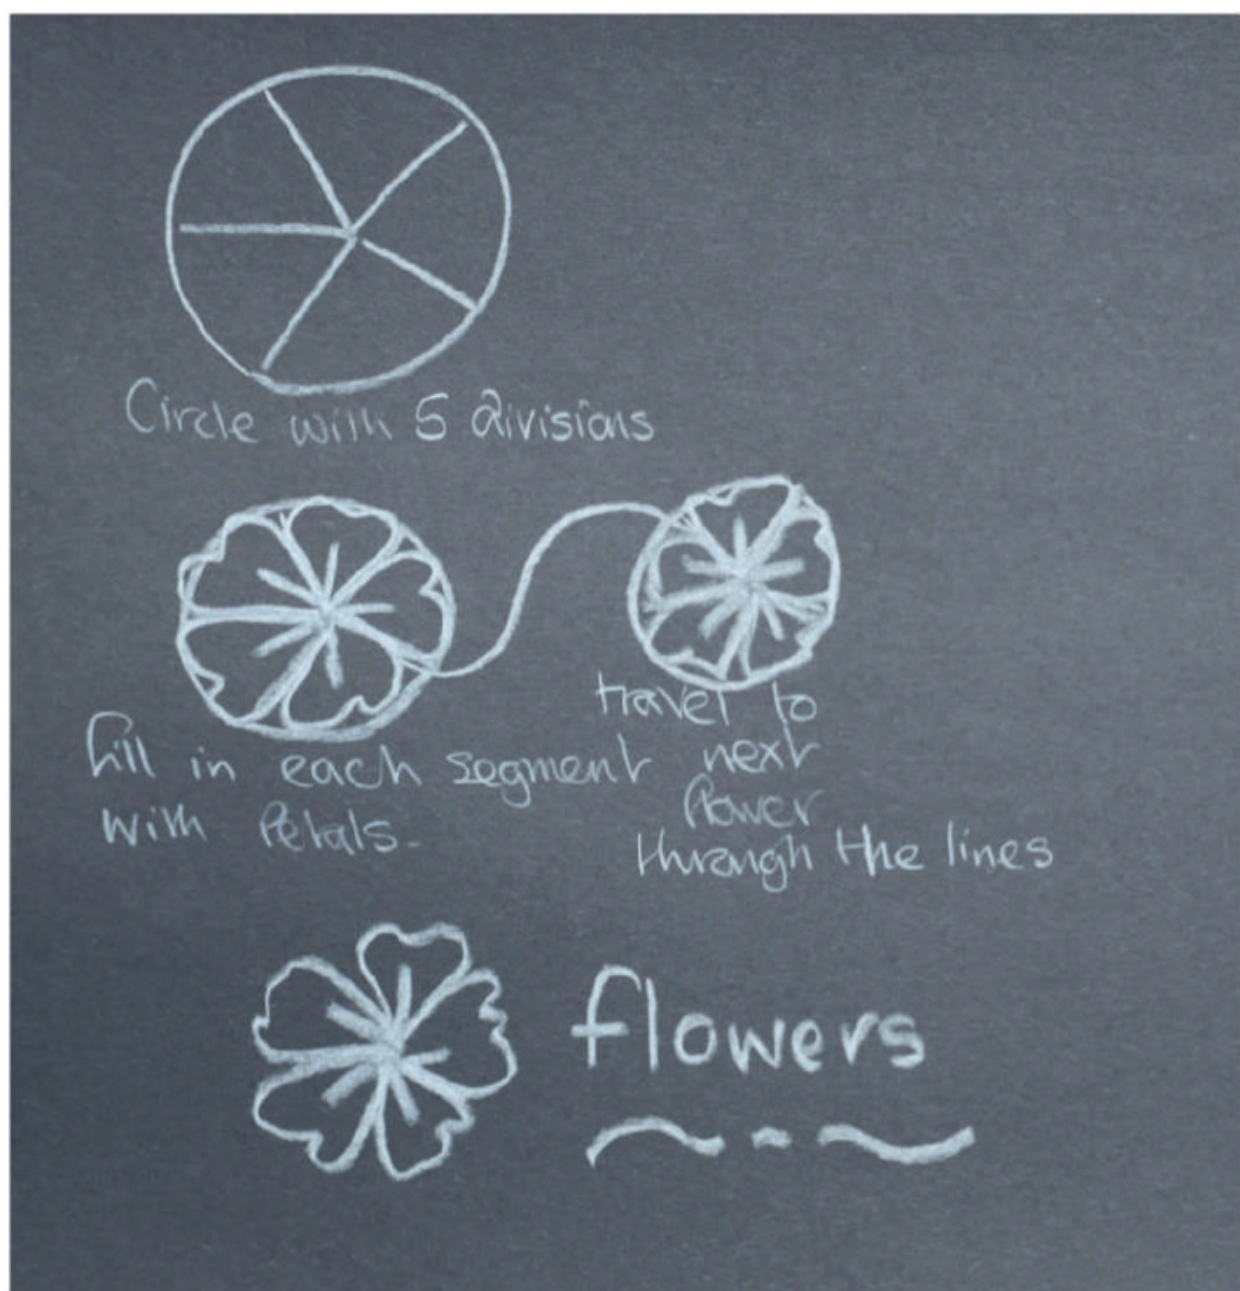 Circle with 5 divisions
fill in each segment
with Petals.
travel to
next
flower
through the lines
flowers